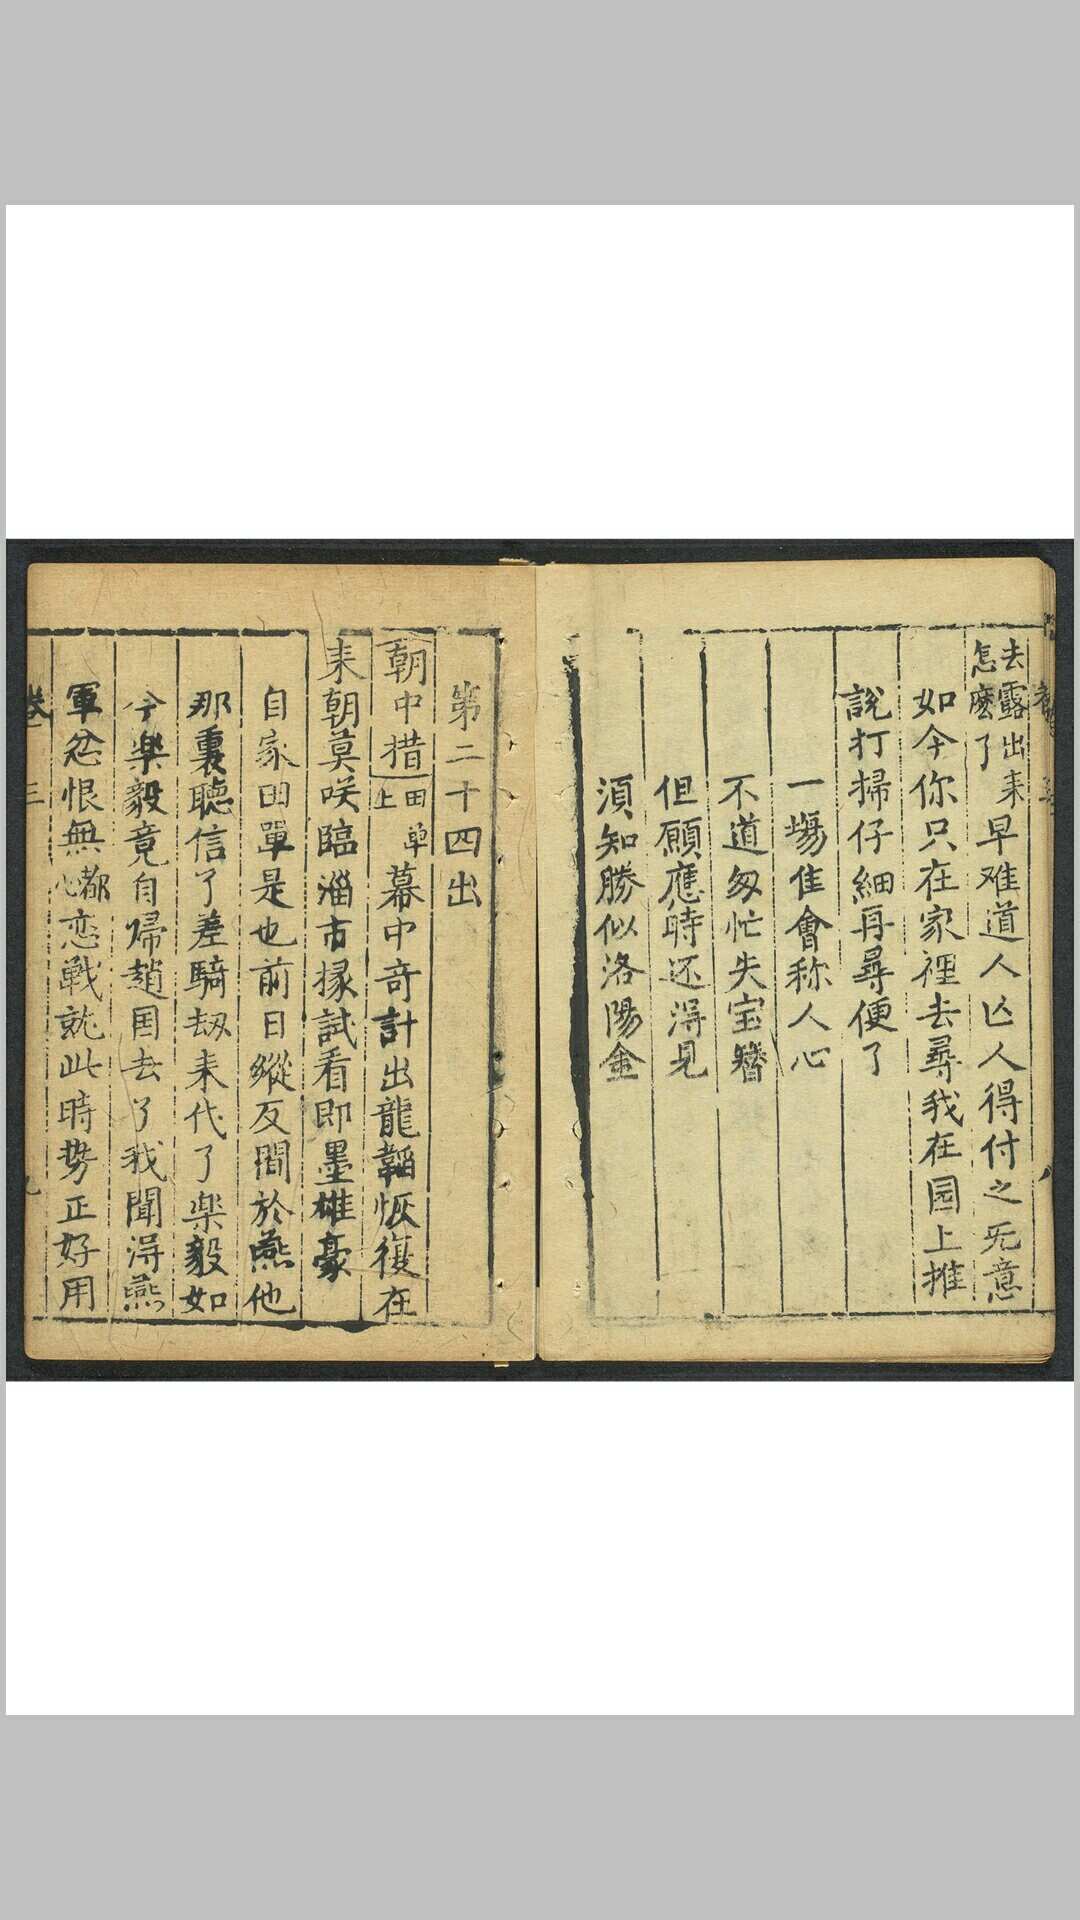 去露出来早难道人亾人得付之旡意
怎麽了
如今你只在家裡去尋我在园上推
說打掃仔細再尋便了
一塲隹會称人心
不道匆忙失宝簪
但願應時还淂見
湏知勝似洛陽金
第二十四出
朝中措上田单幕中竒計出龍韜恢復在
来朝莫咲臨淄市掾試看即墨雄豪
自家田單是也前日縱反間於燕他
那裏聴信了差騎劫来代了楽毅如
今楽毅竟自帰趙囯去了我聞淂燕
軍忿恨無心都恋戦就此時势正好用
卷 三